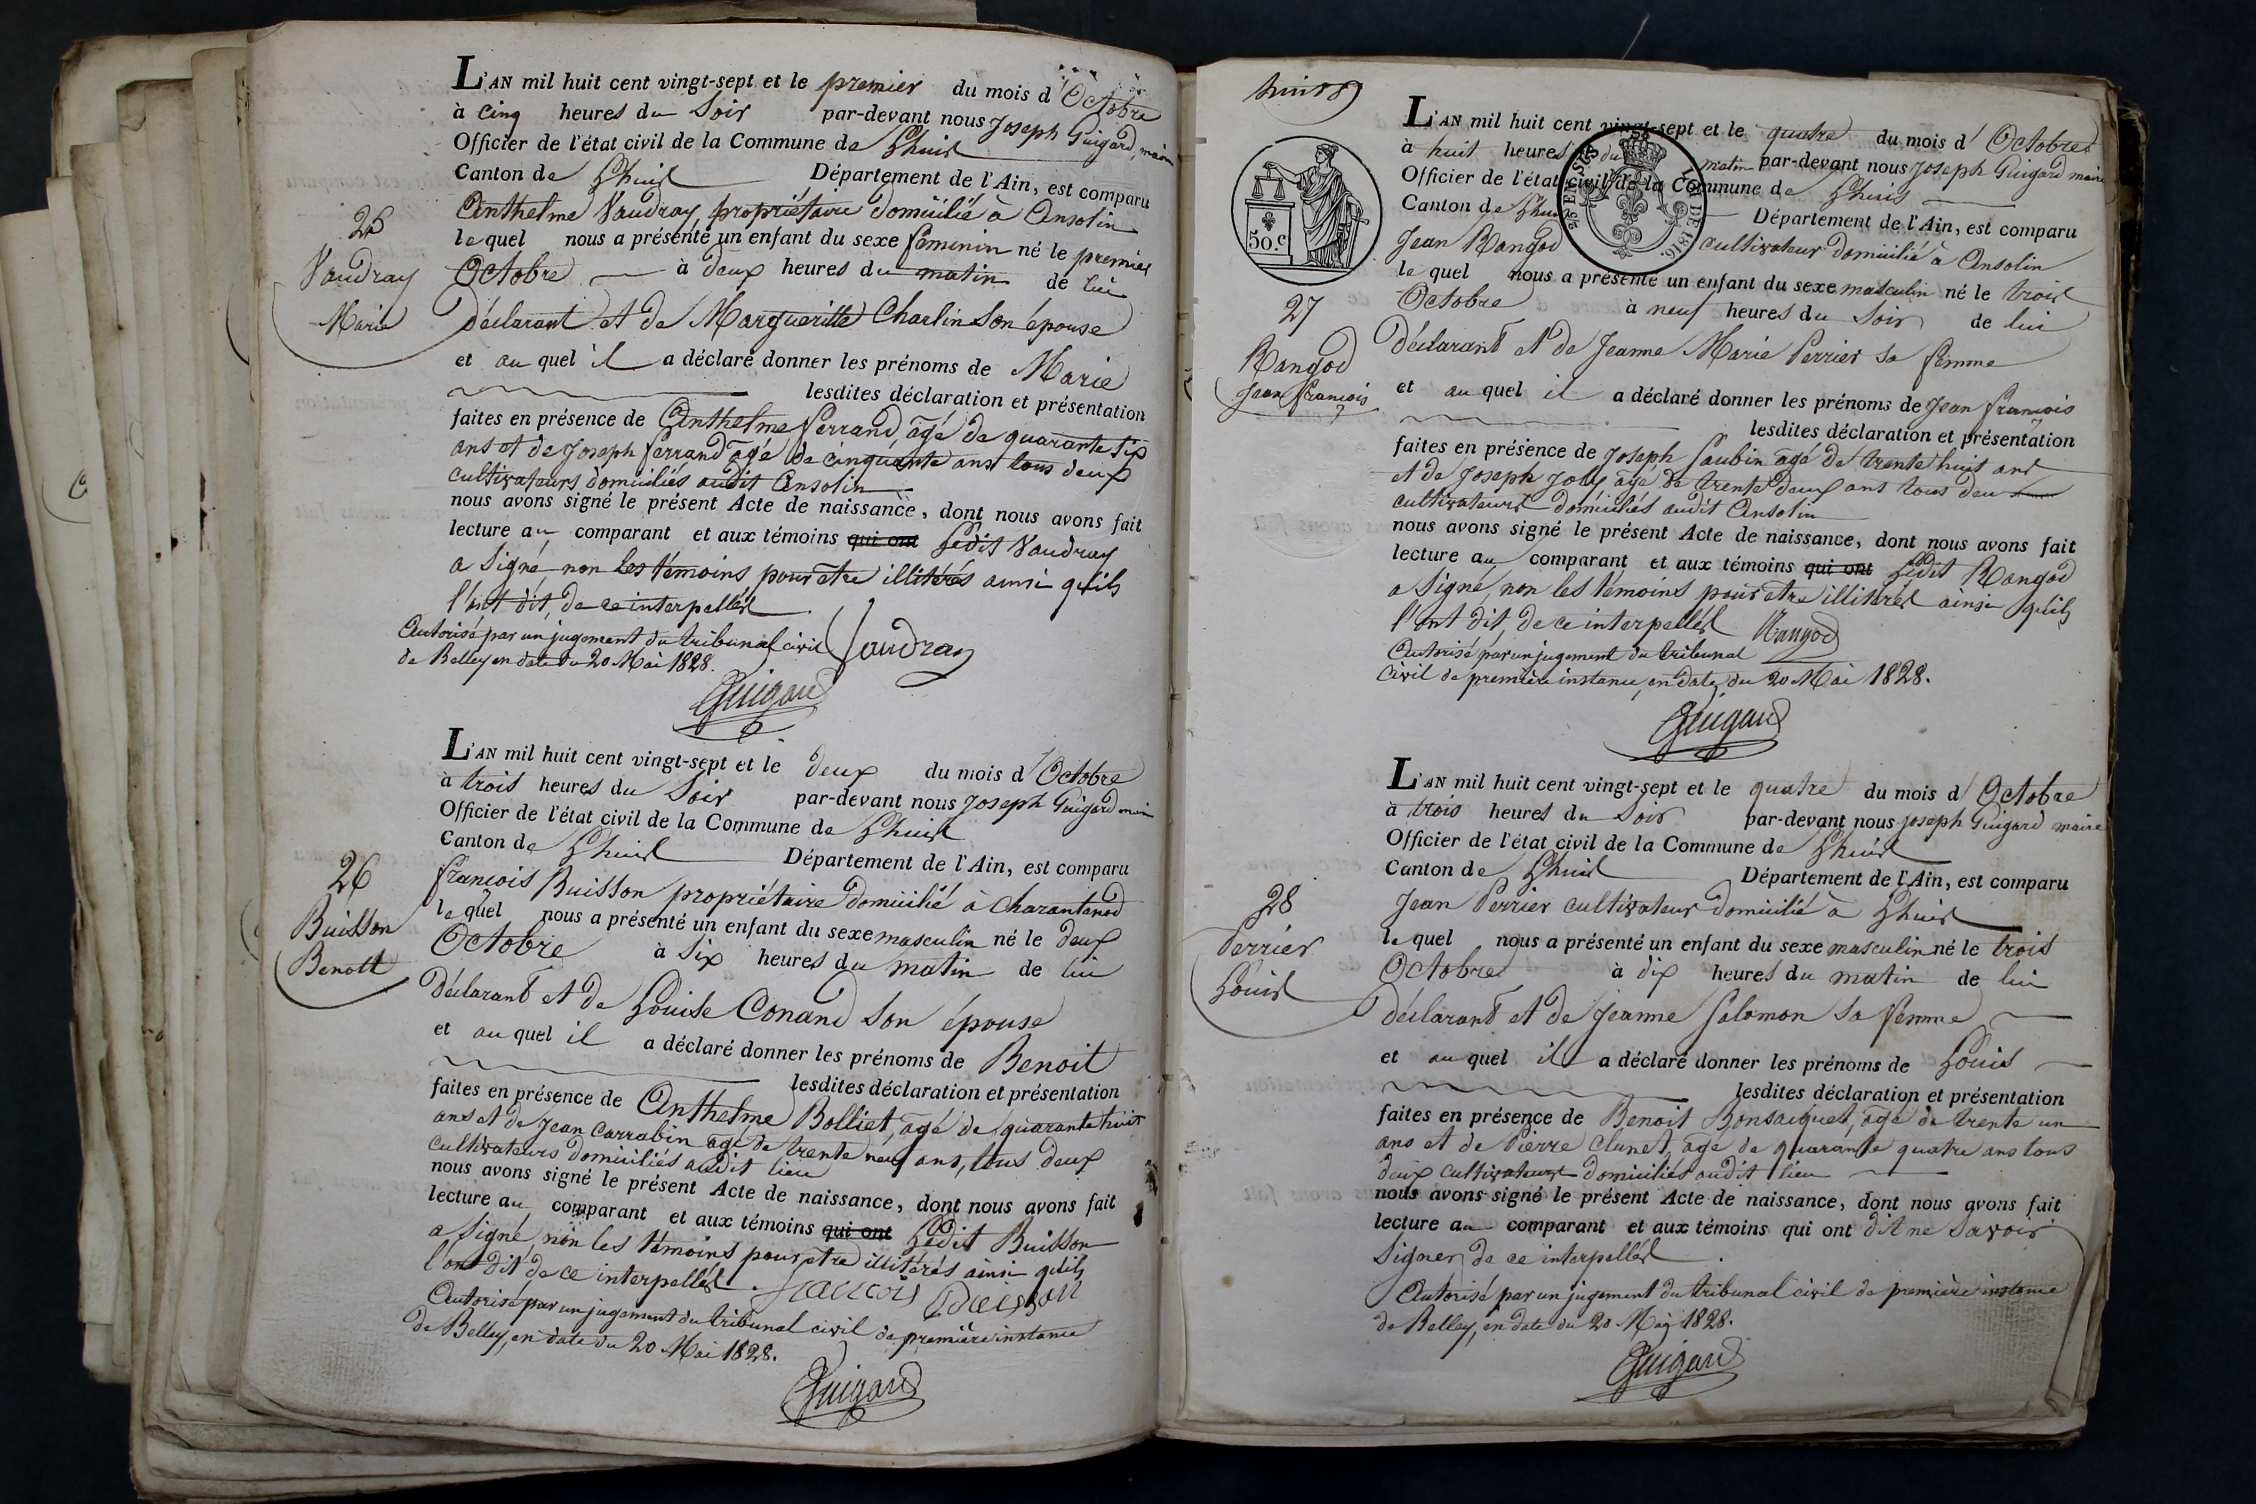 L'AN mil huit cent vingt-sept et le premier du mois d'Octobre
à cinq heures du Soir par-devant nous Joseph Guigard, maire
Officier de l'état civil de la Commune de Lhuis
Canton de Lhuis Département de l'Ain, est comparu
Anthelme Vaudray, propriétaire domicilié à Ansolin
lequel nous a présenté un enfant du sexe féminin né le premier
Octobre à deux heures du matin de lui
déclarant et de Margueritte Charlin son épouse
et au quel il a déclaré donner les prénoms de Marie
lesdites déclaration et présentation
faites en présence de Anthelme ferrand, âgé de quarante six
ans et de Joseph ferrand âgé de cinquante ans tous deux
cultivateurs domiciliés audit Ansolin
nous avons signé le présent Acte de naissance, dont nous avons fait
lecture au comparant et aux témoins qui ont Ledit Vaudray
a Signé non les témoins pour être illitérés ainsi qu'ils
l'ont dit, de ce interpellés
Autorisé par un jugement du tribunal civil
de Belley en date du 20 Mai 1828.
Vaudray
Guigard
25
Vaudray
Marie
L'AN mil huit cent vingt-sept et le deux du mois d'Octobre
à trois heures du Soir par-devant nous Joseph Guigard maire
Officier de l'état civil de la Commune de Lhuis
Canton de Lhuis Département de l'Ain, est comparu
françois Buisson propriétaire domicilié à Charantenod
lequel nous a présenté un enfant du sexe masculin né le deux
Octobre à Six heures du matin de lui
déclarant et de Louise Conand son épouse
et au quel il a déclaré donner les prénoms de Benoit
lesdites déclaration et présentation
faites en présence de Anthelme Bolliet, âgé de quarante huit
ans et de Jean Carrabin âgé de trente neuf ans, tous deux
cultivateurs domiciliés audit lieu
nous avons signé le présent Acte de naissance, dont nous avons fait
lecture au comparant et aux témoins qui ont Ledit Buisson
a Signé, non les témoins pour être illitérés ainsi qu'ils
l'ont dit de ce interpellés. françois Buisson
Autorisé par un jugement du tribunal civil de première instance
de Belley, en date du 20 Mai 1828.
Guigard
26
Buisson
Benoit
50.c
27
Rangod
Jean françois
L'AN mil huit cent vingt-sept et le quatre du mois d'Octobre
à huit heures du matin par-devant nous Joseph Guigard maire
Officier de l'état civil de la Commune de Lhuis
Canton de Lhuis Département de l'Ain, est comparu
Jean Rangod cultivateur domicilié à Ansolin
lequel nous a présenté un enfant du sexe masculin né le trois
Octobre à neuf heures du Soir de lui
déclarant et de Jeanne Marie Perrier sa femme
et au quel il a déclaré donner les prénoms de Jean françois
lesdites déclaration et présentation
faites en présence de Joseph Saubin âgé de trente huit ans
et de Joseph Joly âgé de trente deux ans tous deux
cultivateurs domiciliés audit Ansolin
nous avons signé le présent Acte de naissance, dont nous avons fait
lecture au comparant et aux témoins qui ont Ledit Rangod
a Signé, non les témoins pour être illitérés ainsi qu'ils
l'ont dit, de ce interpellés Rangod
Autorisé par un jugement du tribunal
civil de première instance, en date du 20 Mai 1828.
Guigard
LOI DE 1816.
28
Perrier
Louis
L'AN mil huit cent vingt-sept et le quatre du mois d'Octobre
à trois heures du Soir par-devant nous Joseph Guigard maire
Officier de l'état civil de la Commune de Lhuis
Canton de Lhuis Département de l'Ain, est comparu
Jean Perrier cultivateur domicilié à Lhuis
lequel nous a présenté un enfant du sexe masculin né le trois
Octobre à dix heures du matin de lui
déclarant et de Jeanne Salomon sa femme
et au quel il a déclaré donner les prénoms de Louis
lesdites déclaration et présentation
faites en présence de Benoit Bonsaiquet, âgé de trente un
ans et de Pierre Clunet, âgé de quarante quatre ans tous
deux cultivateurs domiciliés audit lieu
nous avons signé le présent Acte de naissance, dont nous avons fait
lecture au comparant et aux témoins qui ont dit ne Savoir
Signer de ce interpellés.
Autorisé par un jugement du tribunal civil de première instance
de Belley, en date du 20 Mai 1828.
Guigard